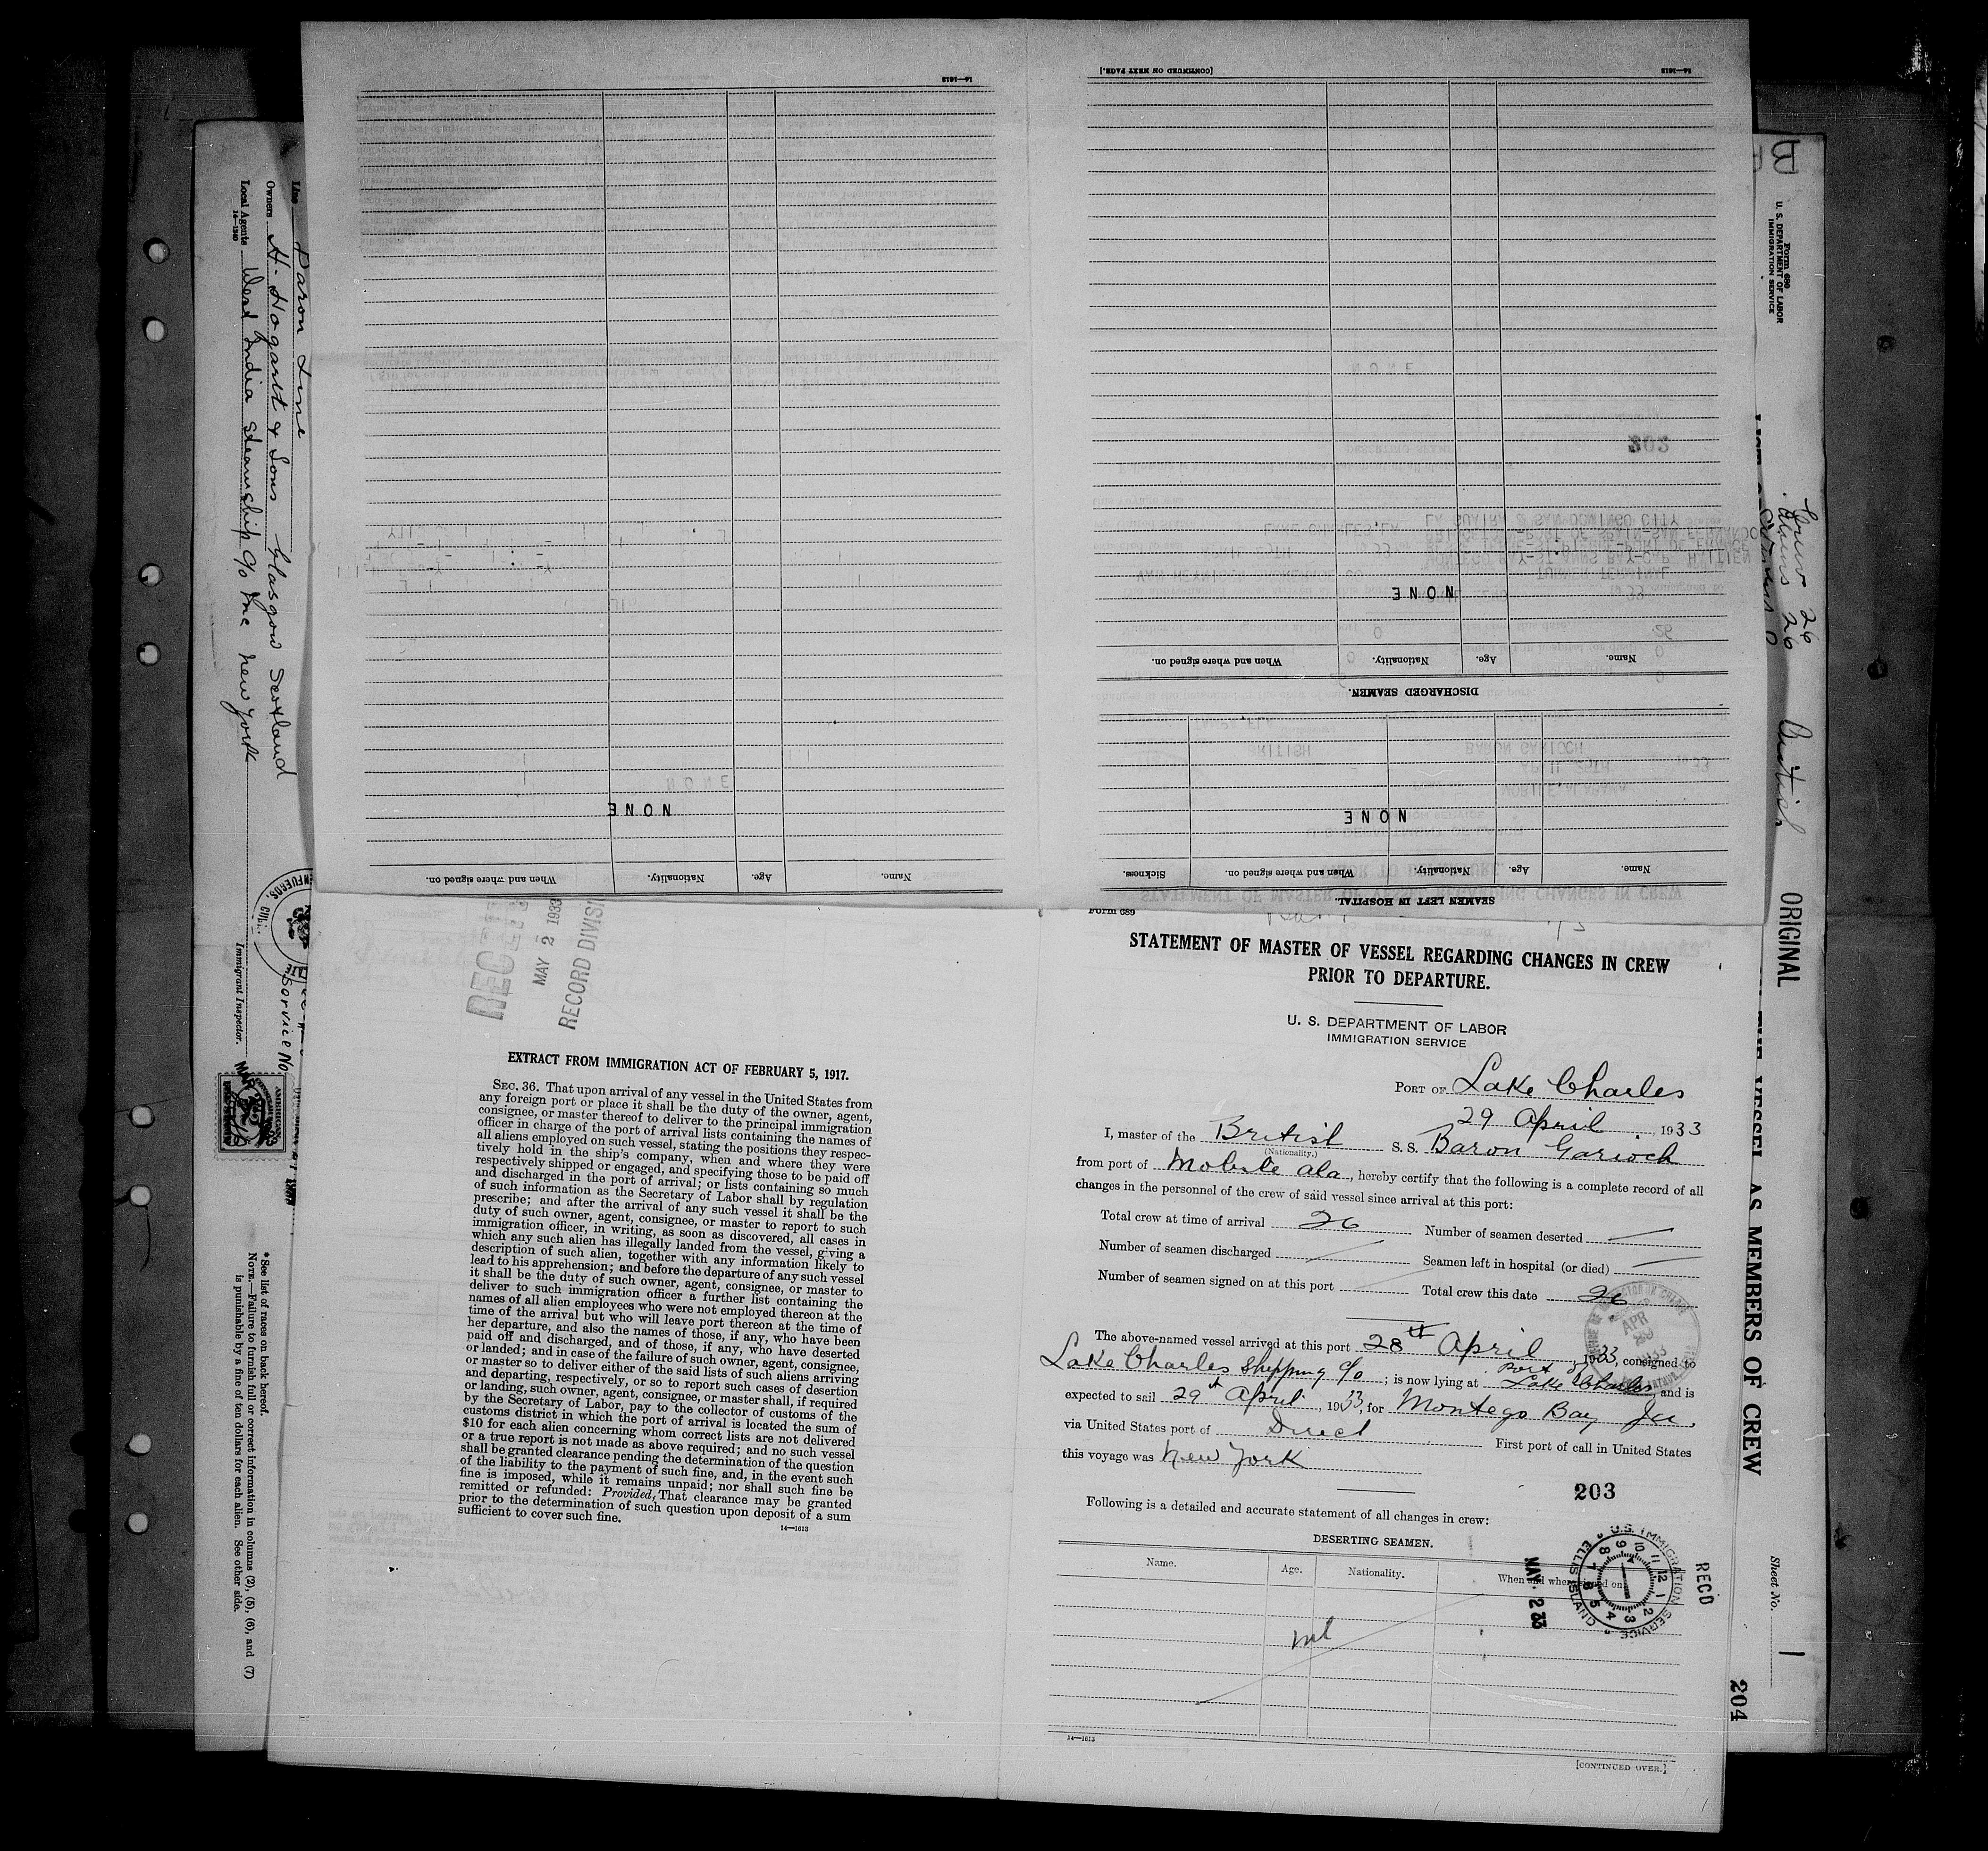 14—1613
[CONTINUED ON NEXT PAGE.]
14—1613
NONE
Name.
Age.
Nationality.
When and where signed on.
NONE
Name. Age. Nationality. When and where signed on.
DISCHARGED SEAMEN.
NONE
Name. Age. Nationality. When and where signed on. Sickness.
SEAMEN LEFT IN HOSPITAL
Line Baron Line
Owners H. Hogarth & Sons Glasgow Scotland
Local Agents West India Steamship Co Inc New York
14—1240
Immigrant Inspector.
Service No
*See list of races on back hereof.
NOTE.—Failure to furnish full or correct information in columns (2), (5), (6), and (7)
is punishable by a fine of ten dollars for each alien. See other side.
MAY 2 1933
RECORD DIVISI
EXTRACT FROM IMMIGRATION ACT OF FEBRUARY 5, 1917.
SEC. 36. That upon arrival of any vessel in the United States from
any foreign port or place it shall be the duty of the owner, agent,
consignee, or master thereof to deliver to the principal immigration
officer in charge of the port of arrival lists containing the names of
all aliens employed on such vessel, stating the positions they respec-
tively hold in the ship's company, when and where they were
respectively shipped or engaged, and specifying those to be paid off
and discharged in the port of arrival; or lists containing so much
of such information as the Secretary of Labor shall by regulation
prescribe; and after the arrival of any such vessel it shall be the
duty of such owner, agent, consignee, or master to report to such
immigration officer, in writing, as soon as discovered, all cases in
which any such alien has illegally landed from the vessel, giving a
description of such alien, together with any information likely to
lead to his apprehension; and before the departure of any such vessel
it shall be the duty of such owner, agent, consignee, or master to
deliver to such immigration officer a further list containing the
names of all alien employees who were not employed thereon at the
time of the arrival but who will leave port thereon at the time of
her departure, and also the names of those, if any, who have been
paid off and discharged, and of those, if any, who have deserted
or landed; and in case of the failure of such owner, agent, consignee,
or master so to deliver either of the said lists of such aliens arriving
and departing, respectively, or so to report such cases of desertion
or landing, such owner, agent, consignee, or master shall, if required
by the Secretary of Labor, pay to the collector of customs of the
customs district in which the port of arrival is located the sum of
$10 for each alien concerning whom correct lists are not delivered
or a true report is not made as above required; and no such vessel
shall be granted clearance pending the determination of the question
of the liability to the payment of such fine, and, in the event such
fine is imposed, while it remains unpaid; nor shall such fine be
remitted or refunded: Provided, That clearance may be granted
prior to the determination of such question upon deposit of a sum
sufficient to cover such fine.
14—1613
Form 689
STATEMENT OF MASTER OF VESSEL REGARDING CHANGES IN CREW
PRIOR TO DEPARTURE.
U. S. DEPARTMENT OF LABOR
IMMIGRATION SERVICE
PORT OF Lake Charles
29 April, 1933
I, master of the British S. S. Baron Garioch
(Nationality.)
from port of Mobile ala, hereby certify that the following is a complete record of all
changes in the personnel of the crew of said vessel since arrival at this port:
Total crew at time of arrival 26 Number of seamen deserted
Number of seamen discharged Seamen left in hospital (or died)
Number of seamen signed on at this port Total crew this date 26
The above-named vessel arrived at this port 28th April, 1933, consigned to
Lake Charles Shipping Co; is now lying at Port of Lake Charles, and is
expected to sail 29th April, 1933, for Montego Bay Ja.
via United States port of Direct First port of call in United States
this voyage was New York
203
Following is a detailed and accurate statement of all changes in crew:
DESERTING SEAMEN.
Name. Age. Nationality. When and where signed on.
nil
14—1613
[CONTINUED OVER.]
APR 29 1933
U.S. IMMIGRATION SERVICE
ELLIS ISLAND
REC'D
MAY. 2 33
Form 680
U. S. DEPARTMENT OF LABOR
IMMIGRATION SERVICE
Crew 26
Aliens 26
British
ORIGINAL
VESSEL AS MEMBERS OF CREW
Sheet No. 1
204